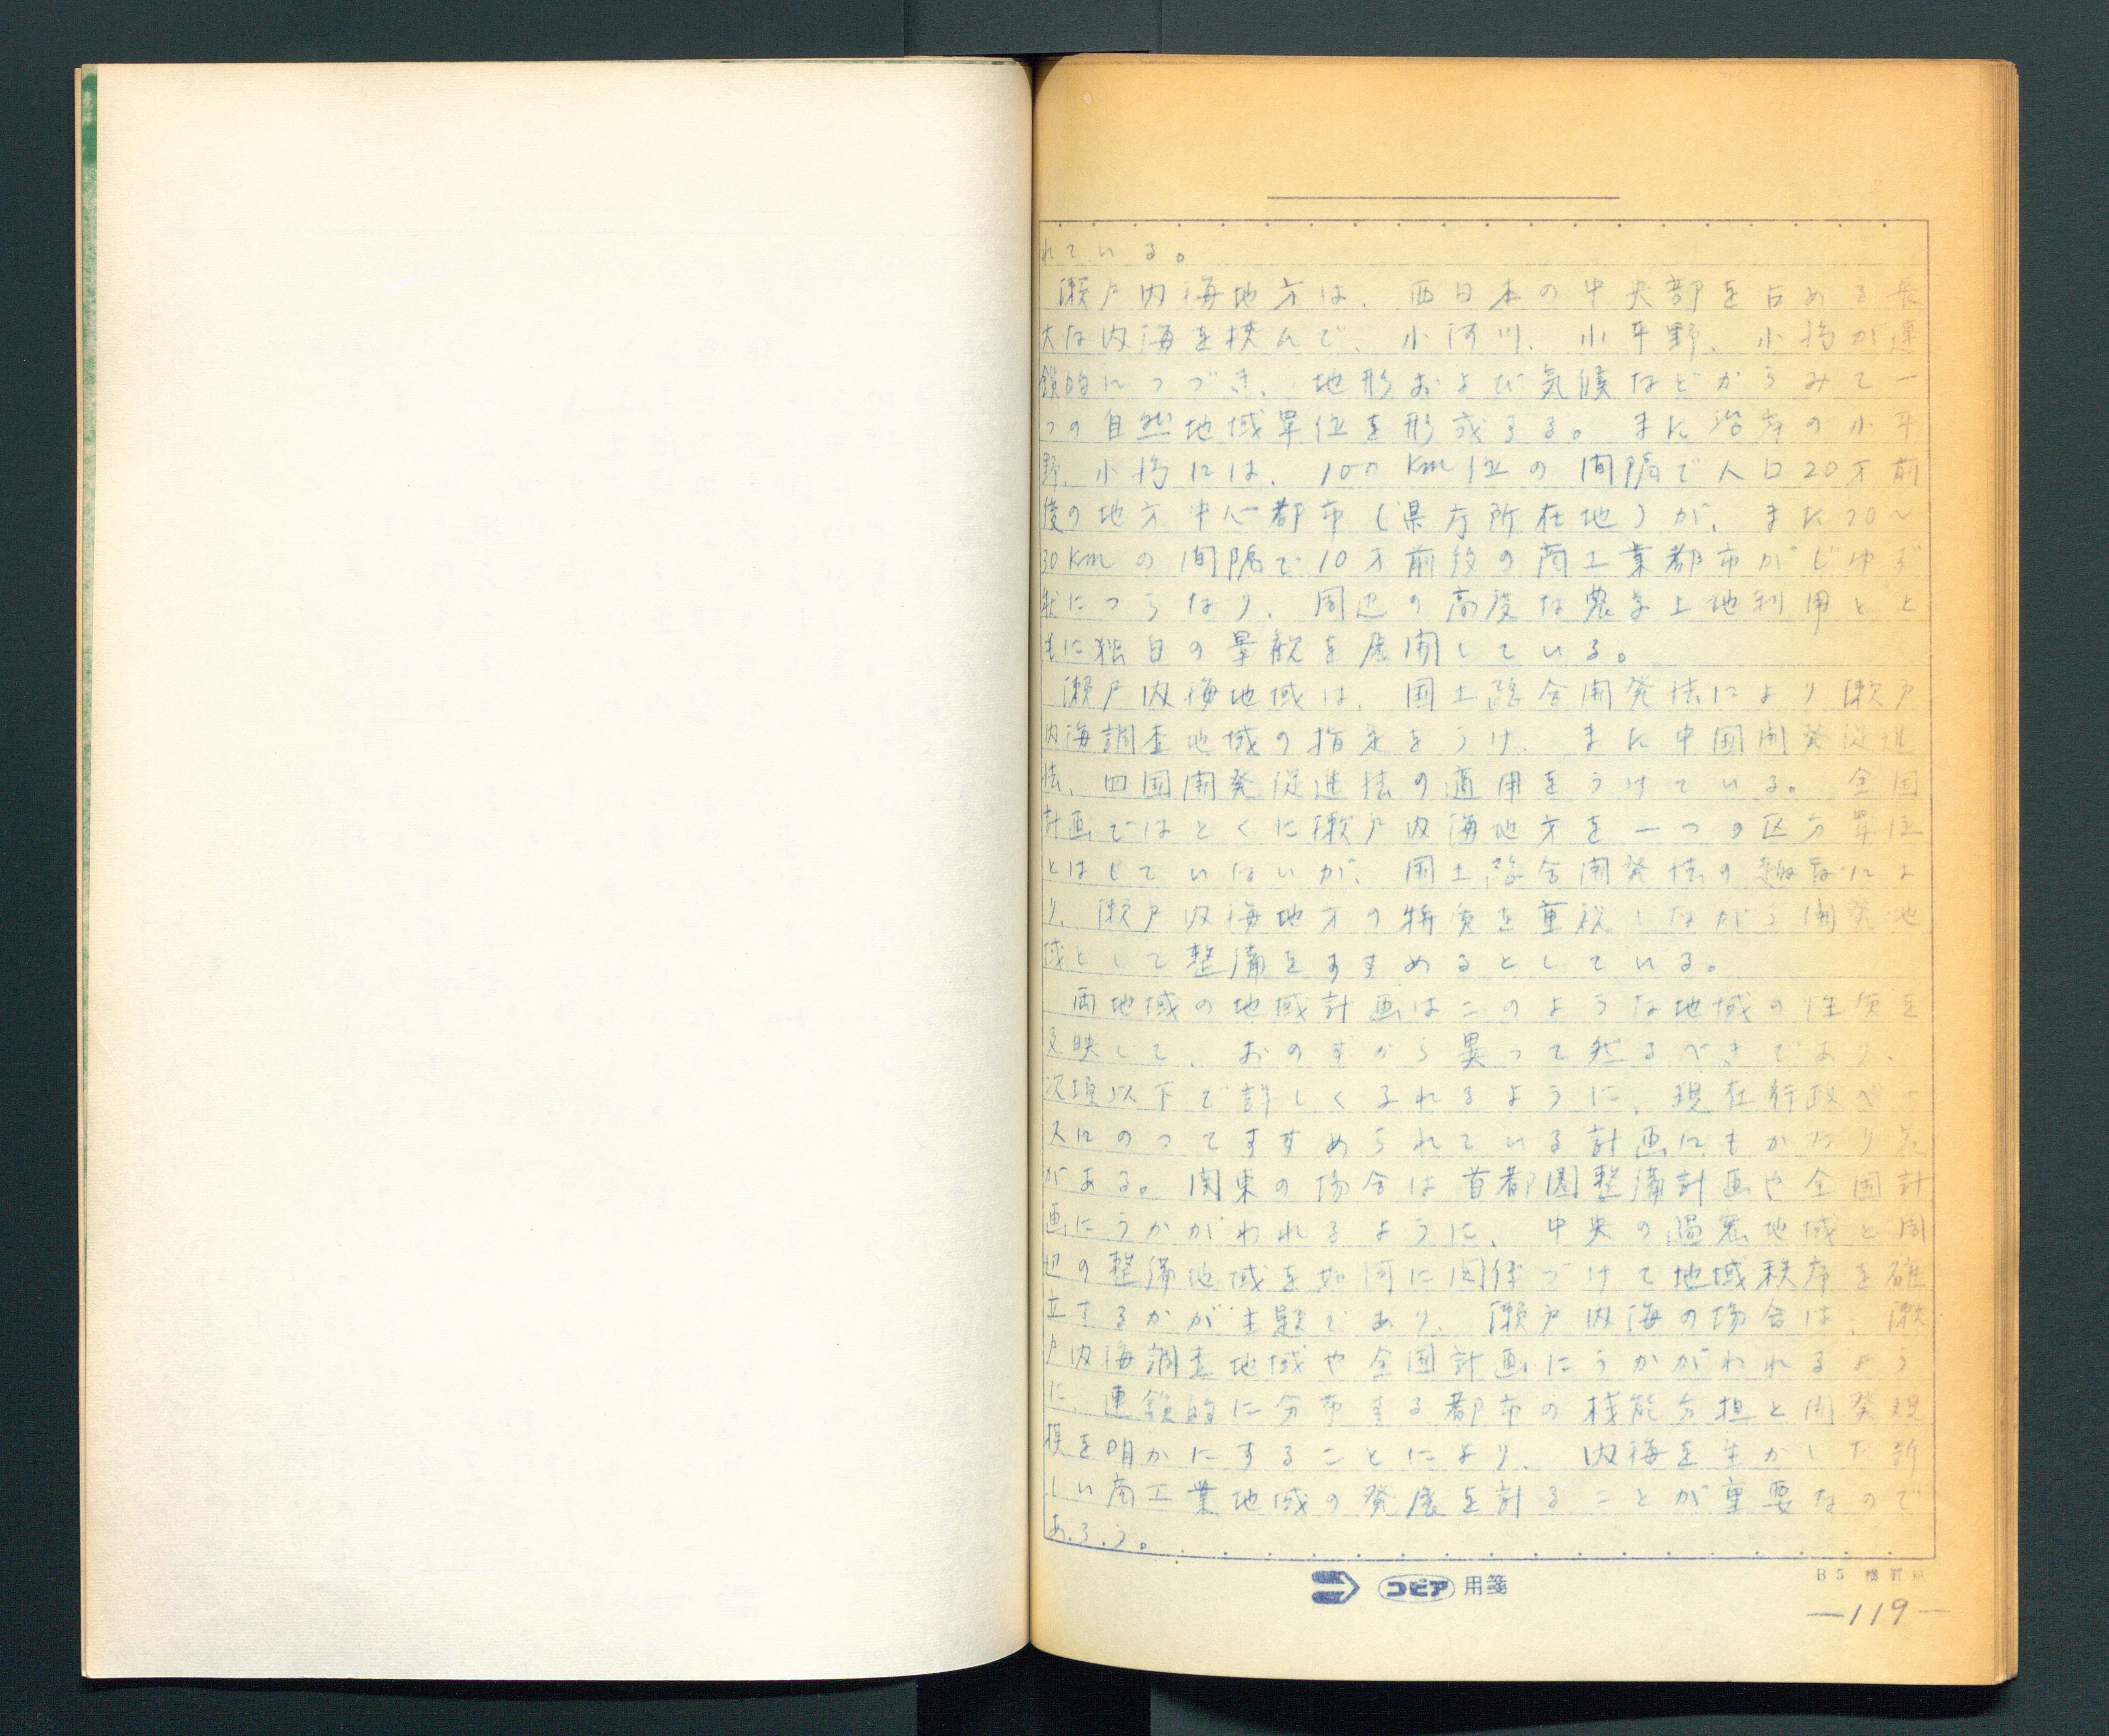 れている。
瀬戸内海地方は、西日本の中央部を占める長
大な内海を挟んで、小河川、小平野、小湾が連
鎖的につづき、地形および気候などからみて一
つの自然地域単位を形成する。また沿岸の小平
野、小湾には、100km位の間隔で人口20万前
後の地方中心都市(県庁所在地)が、また20〜
30kmの間隔で10万前後の商工業都市がじゆず
状につらなり、周辺の高度な農業土地利用とと
もに独自の景観を展開している。
瀬戸内海地域は、国土総合開発法により瀬戸
内海調査地域の指定をうけ、また中国開発促進
法、四国開発促進法の適用をうけている。全国
計画ではとくに瀬戸内海地方を一つの区分単位
とはしていないが、国土総合開発法の趣旨によ
り、瀬戸内海地方の特質を重視しながら開発地
域として整備をすすめるとしている。
両地域の地域計画はこのような地域の性質を
反映して、おのずから異って然るべきであり、
次項以下で詳しくふれるように、現在行政ベー
スにのってすすめられている計画にもかなり差
がある。関東の場合は首都圏整備計画や全国計
画にうかがわれるように、中央の過密地域と周
辺の整備地域を如何に関係づけて地域秩序を確
立するかが主題であり、瀬戸内海の場合は、瀬
戸内海調査地域や全国計画にうかがわれるよう
に、連鎖的に分布する都市の機能分担と開発規
模を明かにすることにより、内海を生かした新
しい商工業地域の発展を計ることが重要なので
あろう。
コピア 用箋
B5 横罫紙
—119—